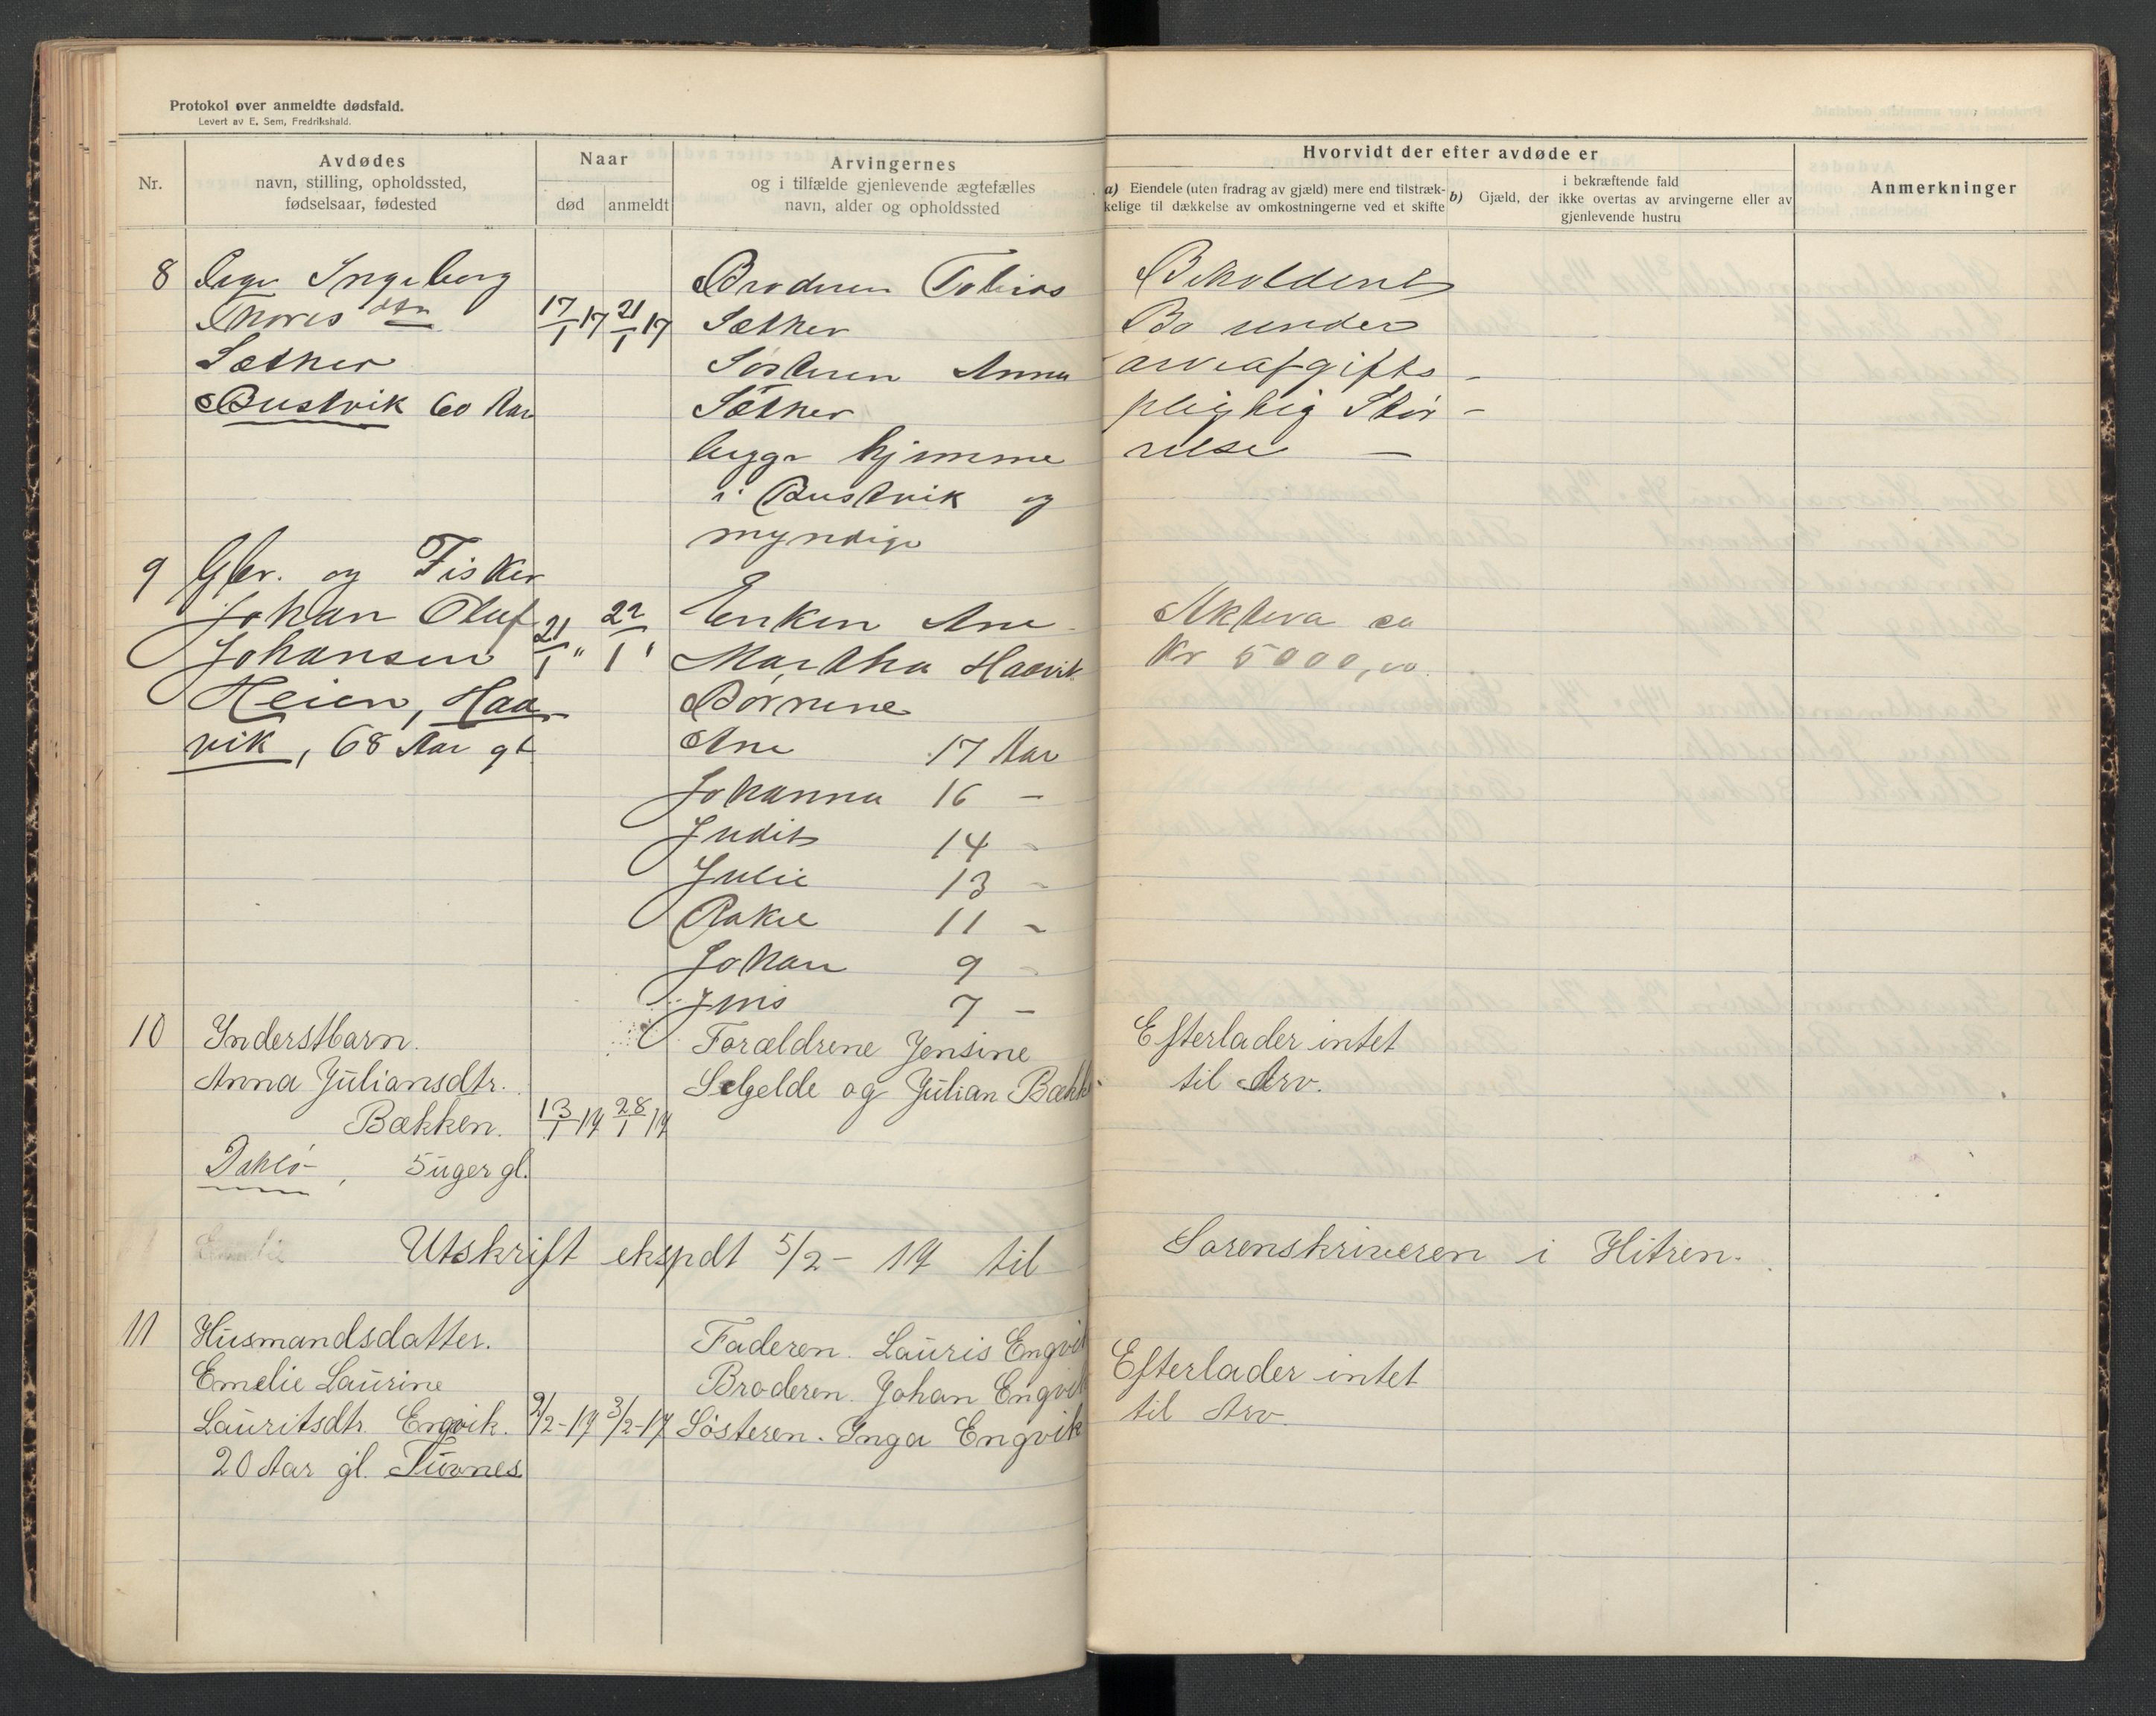 Protokol over anmeldte dødsfald.
Levert av E. Sem, Fredrikshald.
Nr.
Avdødes
navn, stilling, opholdssted,
fødselsaar, fødested
Naar
død
anmeldt
Arvingernes
og i tilfælde gjenlevende ægtefælles
navn, alder og opholdssted
Hvorvidt der efter avdøde er
a) Eiendele (uten fradrag av gjæld) mere end tilstræk-
kelige til dækkelse av omkostningerne ved et skifte
b) Gjæld, der
i bekræftende fald
ikke overtas av arvingerne eller av
gjenlevende hustru
Anmerkninger
8
Pige Ingeborg
Thoresdtr
Sæther
Bustvik 60 Aar
17/1 17
21/1 17
Broderen Tobias
Sæther
Søsteren Anna
Sæther
begge hjemme
i Bustvik og
myndige
Beholdent
Bo under
arveafgifts-
pligtig Stør-
relse —
9
Gbr. og Fisker
Johan Oluf
Johansen
Heien, Haa-
vik, 68 Aar gl
21/1 "
22/1 "
Enken Ane
Martha Haavik
Børnene
Ane 17 Aar
Johanna 16 –
Judit 14 –
Julie 13 –
Rakel 11 –
Johan 9 –
Jens 7 –
Aktiva ca
Kr 5000,00
10
Inderstbarn.
Anna Juliansdtr.
Bækken.
Dahlø, 5 uger gl.
13/1 17
28/1 17
Forældrene Jensine
Selgelde og Julian Bækk
Efterlader intet
til Arv.
Emelie
Utskrift ekspdt 5/2 - 17 til Sorenskriveren i Hitren.
11
Husmandsdatter.
Emelie Laurine
Lauritsdtr. Engvik.
20 Aar gl.
2/2-17
3/2-17
Faderen. Lauris Engvik
Broderen. Johan Engvik
Søsteren. Inga Engvik
Efterlader intet
til Arv.